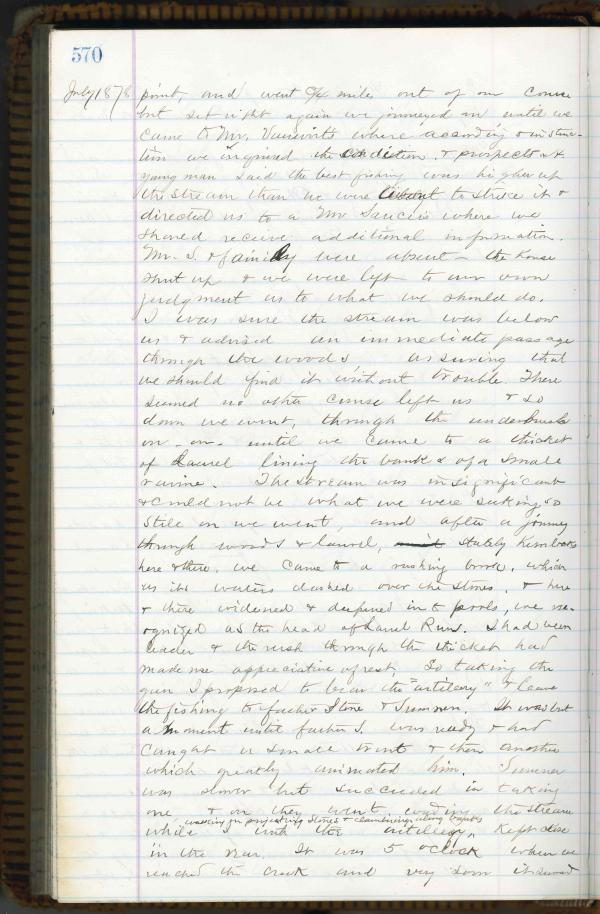 570
July 1878 point, and went 3/4 miles out of our course
but set right again we journeyed on until we
came to Mr. where according to instruc-
tion we inquired the condition & prospects. A
young man said the best fishing was higher up
the stream than we were to strike it &
directed us to a Mr where we
should receive additional information.
Mr. S. & family were absent - the house
shut up & we were left to our own
judgment as to what we should do.
I was sure the stream was below
us & advised an immediate passage
through the woods assuring that
we should find it without trouble. There
seemed no other course left us & so
down we went, through the underbrush
on - on - until we came to a thicket
of Laurel lining the banks of a small
ravine. The stream was insignificant
& could not be what we were seeking so
still on we went, and after a journey
through woods & laurel, stately hemlocks
here & there, we came to a rushing brook, which
as its waters dashed over the stones, & here
& there widened & deepened into pools, we rec-
ognized as the head of Laurel Run. I had been
leader & the rush through the thicket had
made me appreciative of rest. So taking the
gun I proposed to bear the "artillery" & leave
the fishing to father Stone & Sumner. It was but
a moment until father S. was ready & had
caught a small trout & then another
which greatly animated him. Sumner
was slower but succeeded in taking
one & on they went, wading the stream
walking on projecting stones & clambering along banks
while I with the "artillery" kept close
in the rear. It was 5 o'clock when we
reached the creek and very soon it